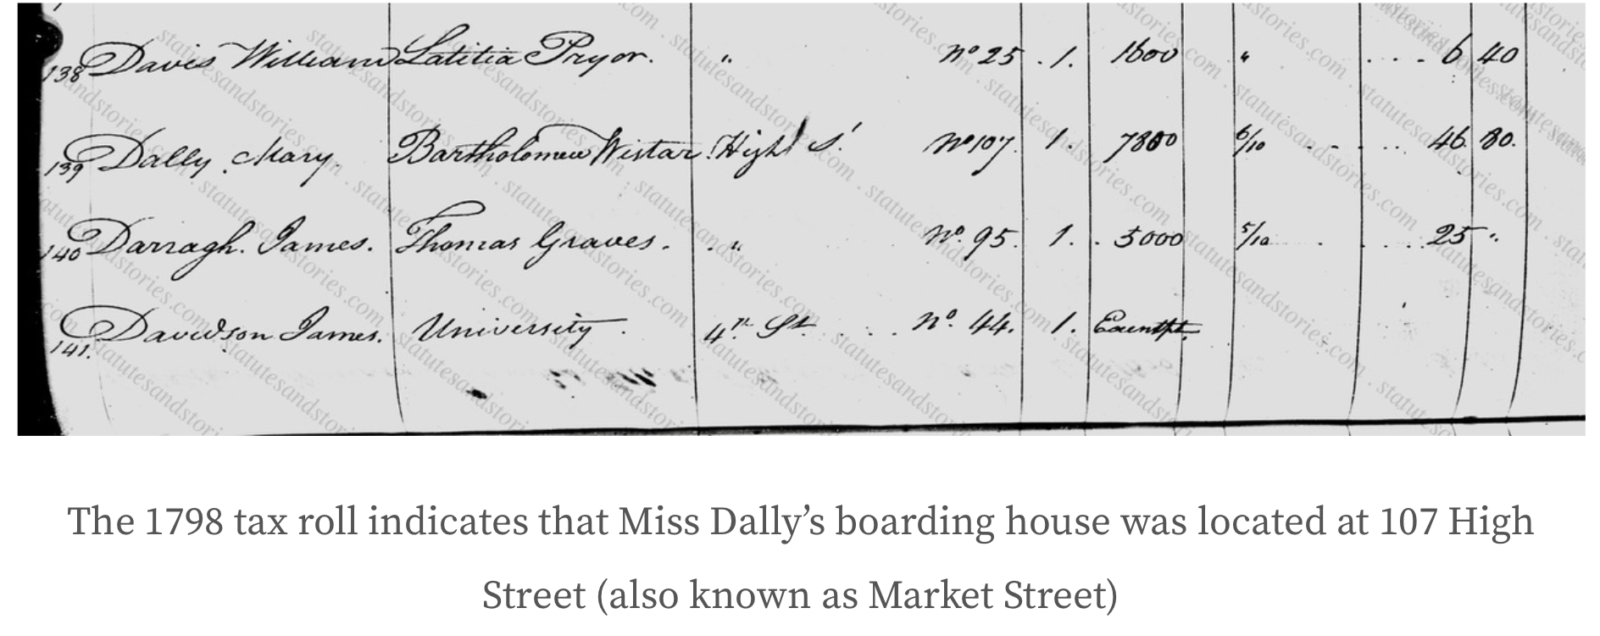 138 Davis William Latitia Pryor. " No 25 . 1. 1600 " .... 6 40
139 Dally Mary. Bartholomew Wistar High St No 107 1. 7800 6/10 .... 46 80.
140 Darragh. James. Thomas Graves. . " No. 95. 1. . 5000 5/10 .... 25 "
141. Davidson James. University. 4th St ... No. 44. 1. Exempt.
The 1798 tax roll indicates that Miss Dally’s boarding house was located at 107 High
Street (also known as Market Street)